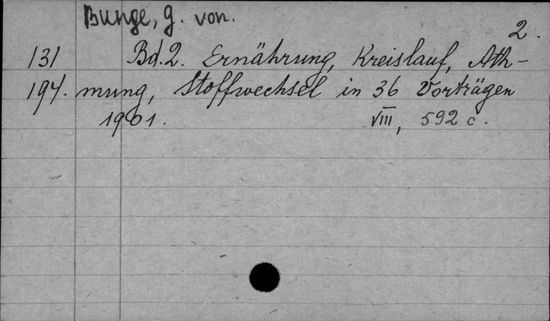 Bunge, G. von.
2.
131 Bd. 2. Ernährung, Kreislauf, Ath-
194. mung, Stoffwechsel in 36 Vorträgen
1901. VIII, 592 c.